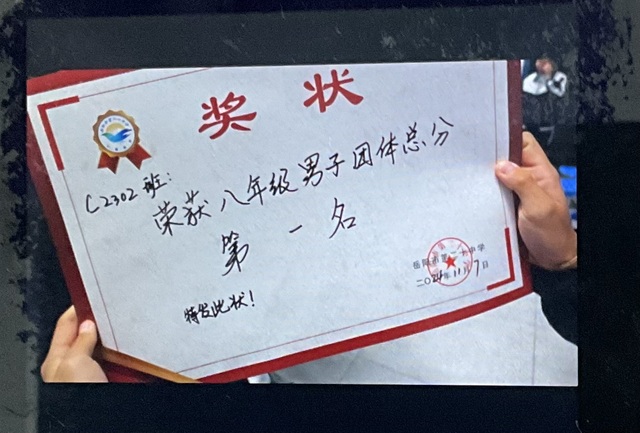 奖状
C2302班:
荣获八年级男子团体总分
第一名
特发此状!
岳阳市第二十中学
二〇24年11月7日